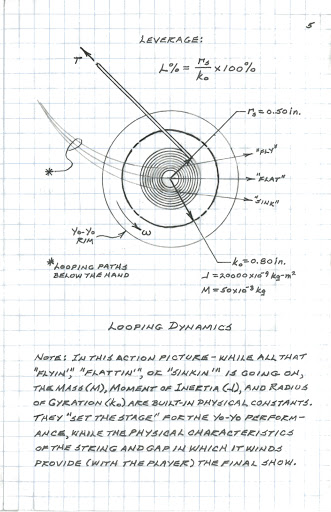 5
LEVERAGE:
L% = r₃/k₀ × 100%
T
r₃ = 0.50 in.
"FLY"
"FLAT"
"SINK"
*
YO-YO
RIM
ω
k₀ = 0.80 in.
*LOOPING PATHS
BELOW THE HAND
I = 20000 x 10⁻⁹ kg-m²
M = 50 x 10⁻³ kg
LOOPING DYNAMICS
NOTE: IN THIS ACTION PICTURE - WHILE ALL THAT
"FLYIN'," "FLATTIN'," OR "SINKIN'" IS GOING ON,
THE MASS (M), MOMENT OF INERTIA (I), AND RADIUS
OF GYRATION (k₀) ARE BUILT-IN PHYSICAL CONSTANTS.
THEY "SET THE STAGE" FOR THE YO-YO PERFORM-
ANCE, WHILE THE PHYSICAL CHARACTERISTICS
OF THE STRING AND GAP IN WHICH IT WINDS
PROVIDE (WITH THE PLAYER) THE FINAL SHOW.